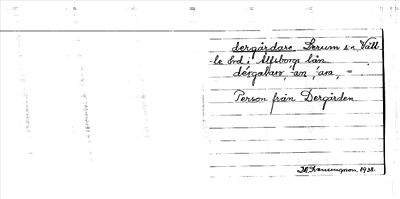 dergårdare Lerum sn Vätt-
le hd i Älfsborgs län
dérgaɫarə, -an, -ara, =
Person från Dergården
1938.